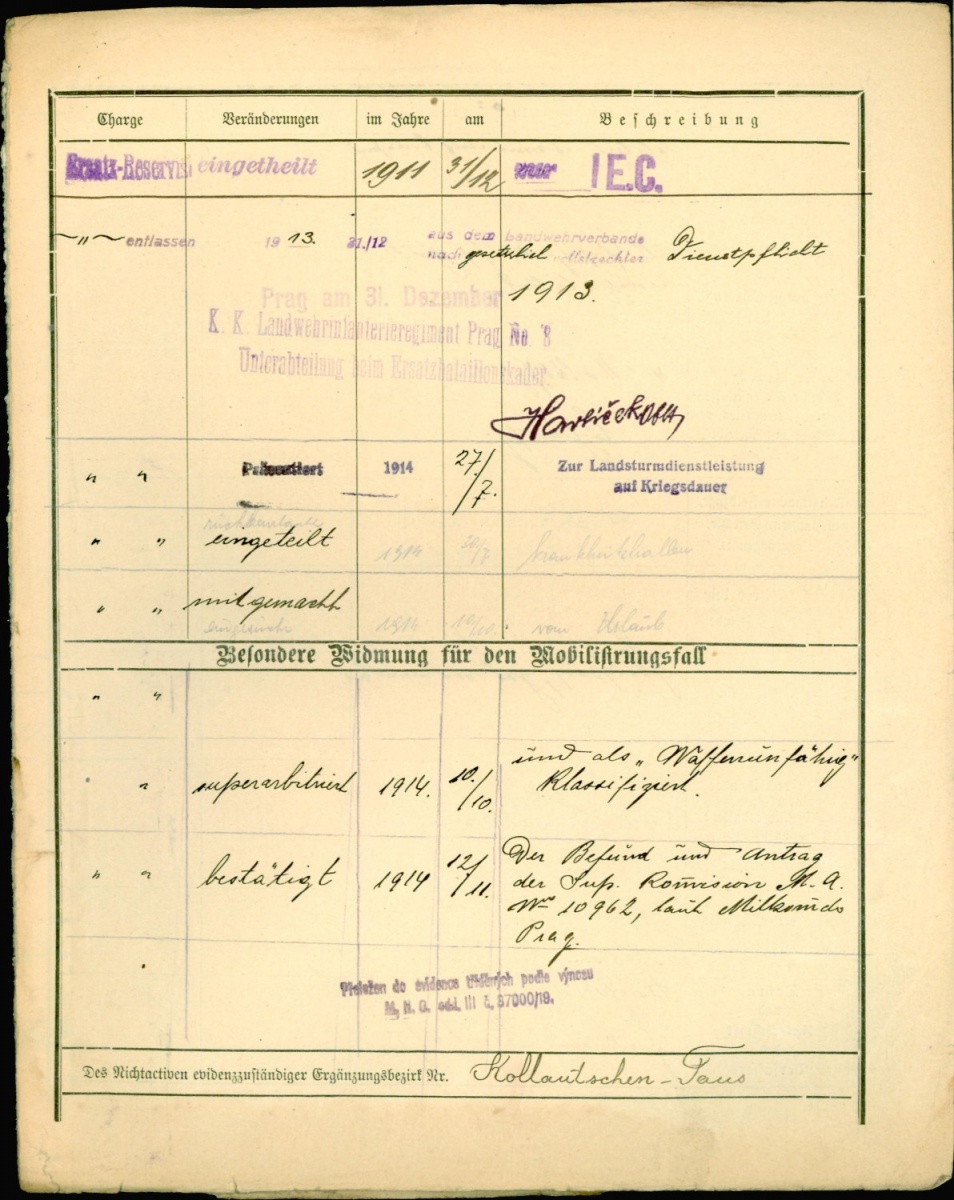 Charge Veränderungen im Jahre am Beschreibung
Ersatz-Reservist eingetheilt 1911 31/12 1 E.C.
〃 entlassen 1913. 31./12 aus dem Landwehrverbande
nach gesetzlich Dienstpflicht
1913.
Prag am 31. Dezember
K. K. Landwehrinfanterieregiment Prag No. 8
Unterabteilung beim Ersatzbataillonskader.
〃 〃 Präsentiert 1914 27./7. Zur Landsturmdienstleistung
auf Kriegsdauer
〃 〃 eingeteilt 1914
〃 〃 mitgemacht
1914 vom Urlaub
Besondere Widmung für den Mobilisirungsfall
〃 〃
〃 〃 superarbitriert 1914. 10./10. und als „Waffenunfähig"
klassifiziert.
〃 〃 bestätigt 1914 12/11. Der Befund und Antrag
der Sup. Kom̄ision M. A.
Nro 10962, laut Milkom̄do
Prag.
Přeložen do evidence tříděných podle výnosu
M. N. O. odd. III č. 37000/19.
Des Nichtactiven evidenzzuständiger Ergänzungsbezirk Nr. Kollautschen - Taus